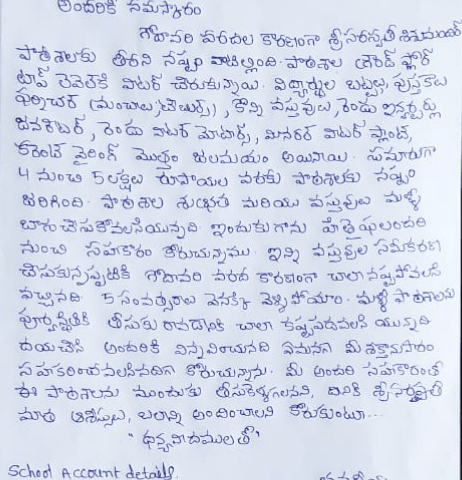 అందరికి నమస్కారం
గోదావరి వరదల కారణంగా శ్రీ సరస్వతీ శిశుమందిర్
పాఠశాలకు తీరని నష్టం వాటిల్లింది. పాఠశాల థర్డ్ ఫ్లోర్
టాప్ లెవెల్కి వాటర్ చేరుకున్నాయి. విద్యార్థుల బట్టలు, పుస్తకాలు
ఫర్నిచర్ (మంచాలు, టేబుల్స్), కొన్ని వస్తువులు, రెండు ఇన్వర్టర్లు
జనరేటర్, రెండు వాటర్ మోటార్స్, మినరల్ వాటర్ ప్లాంట్,
కరెంట్ వైరింగ్ మొత్తం జలమయం అయినాయి. సుమారుగా
4 నుంచి 5 లక్షల రూపాయల వరకు పాఠశాలకు నష్టం
జరిగింది. పాఠశాల శుభ్రత మరియు వస్తువులు మళ్ళీ
బాగుచేసుకోవలసియున్నది. ఇందుకుగాను హితైషులందరి
నుంచి సహకారం కోరుచున్నాము. ఇన్ని వస్తువుల సమీకరణ
చేసుకున్నప్పటికి గోదావరి వరద కారణంగా చాలా నష్టపోవలసి
వచ్చినది. 5 సంవత్సరాలు వెనక్కి వెళ్ళిపోయాం. మళ్ళీ పాఠశాలను
పూర్వస్థితికి తీసుకు రావడానికి చాలా కష్టపడవలసి యున్నది
దయచేసి అందరికి విన్నవించునది ఏమనగా మీ శక్తానుసారం
సహకరించవలసినదిగా కోరుచున్నాను. మీ అందరి సహకారంతో
ఈ పాఠశాలను ముందుకు తీసుకెళ్ళగలనని, దీనికి శ్రీ సరస్వతీ
మాత ఆశీస్సులు, బలాన్ని అందించాలని కోరుకుంటూ...
"ధన్యవాదములతో"
School Account details.